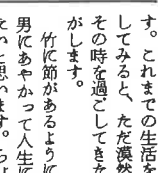 す。これまでの生活を
してみると、ただ漠然
その時を過ごしてきた
がします。
竹に節があるように
男にあやかって人生に
たいと思います。